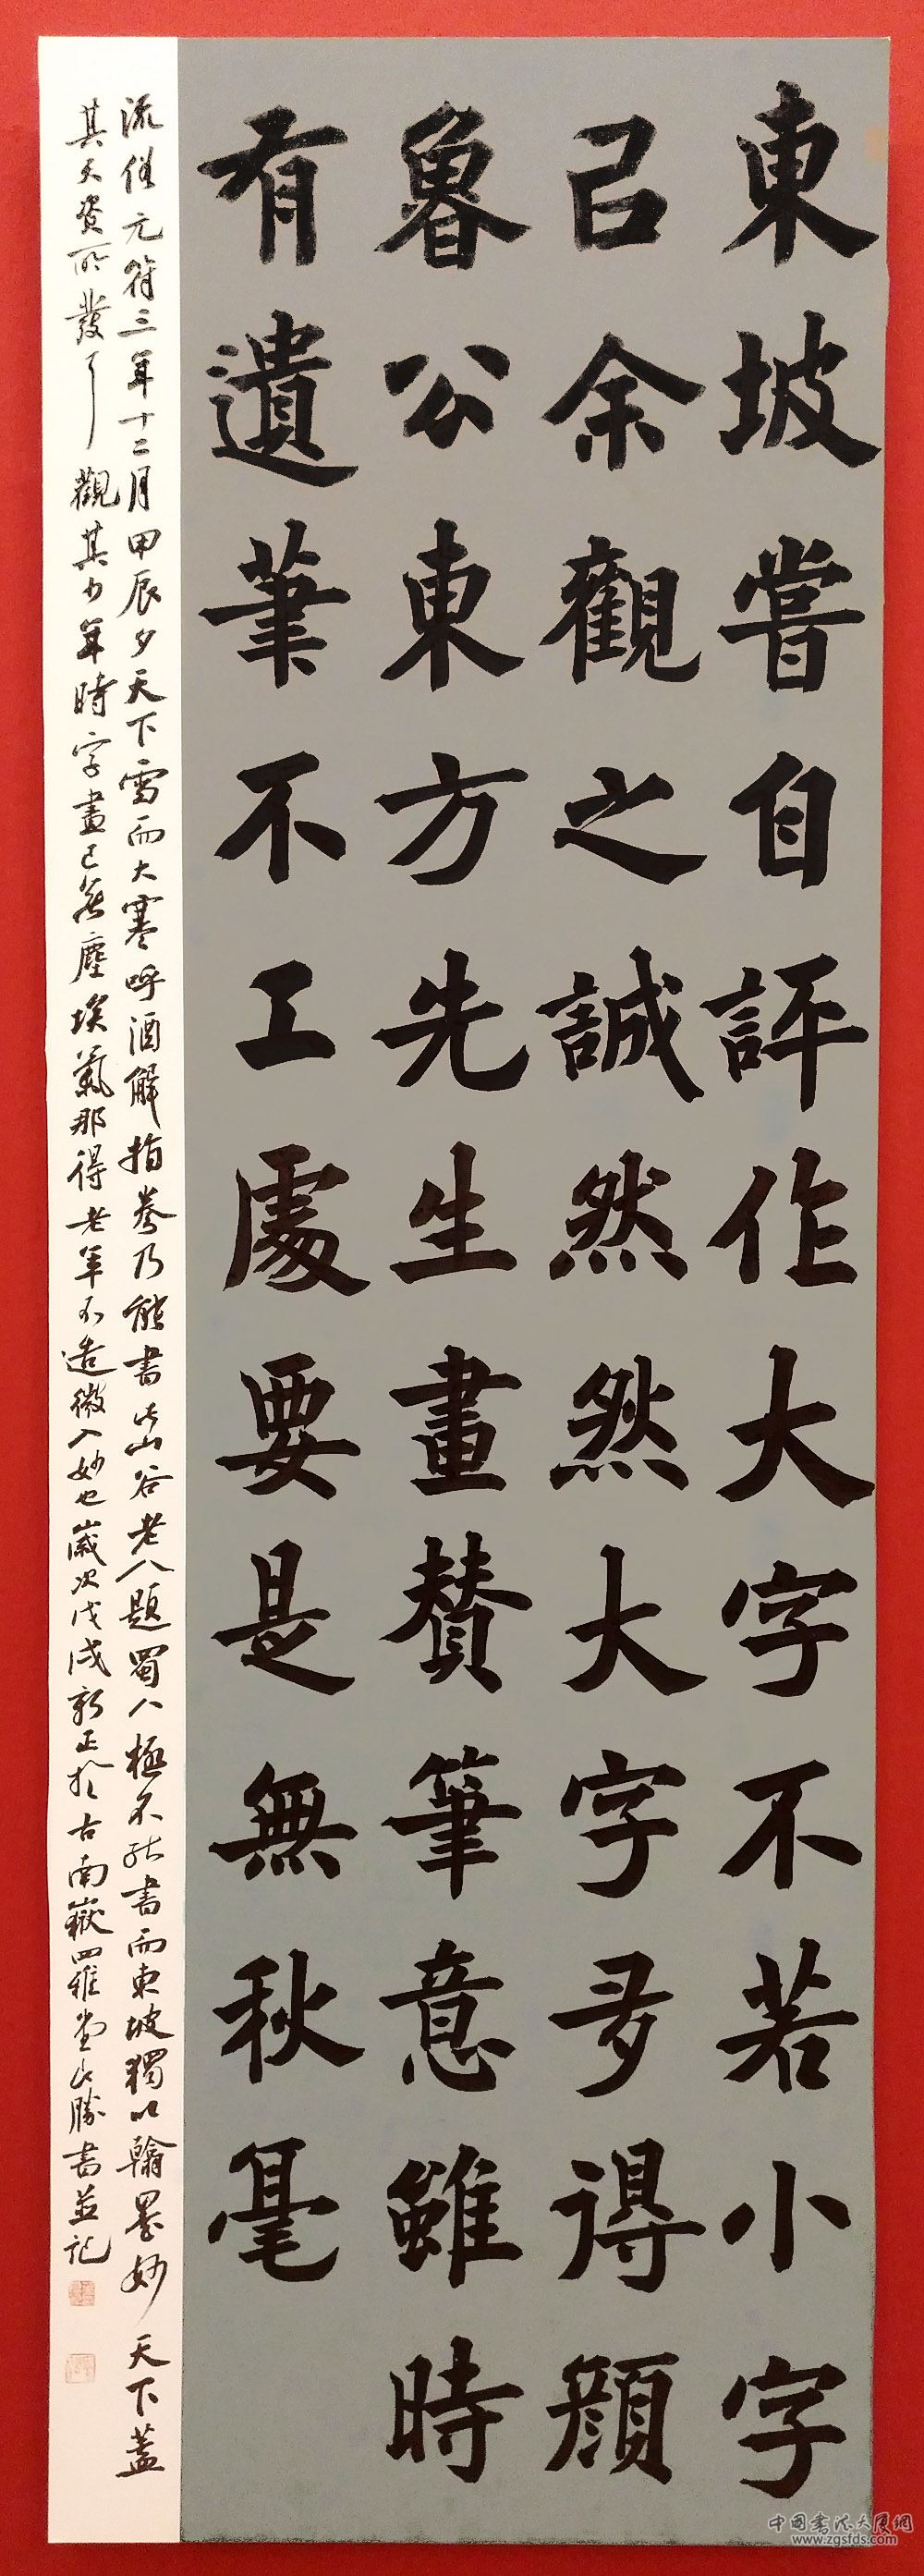 東坡嘗自評作大字不若小字
已余觀之誠然然大字多得顔
魯公東方先生畫贊筆意雖時
有遺筆不工處要是無秋毫
流俗元符三年十二月甲辰夕天下雪而大寒呼酒解指拳乃能書此山谷老人題蜀人極不能書而東坡獨以翰墨妙天下蓋
其天資所發耳觀其少年時字畫已無塵埃氣那得老年不造微入妙也歲次戊戌新正於古南嶽四維堂山勝書並記
中国书法大展网
www.zgsfds.com